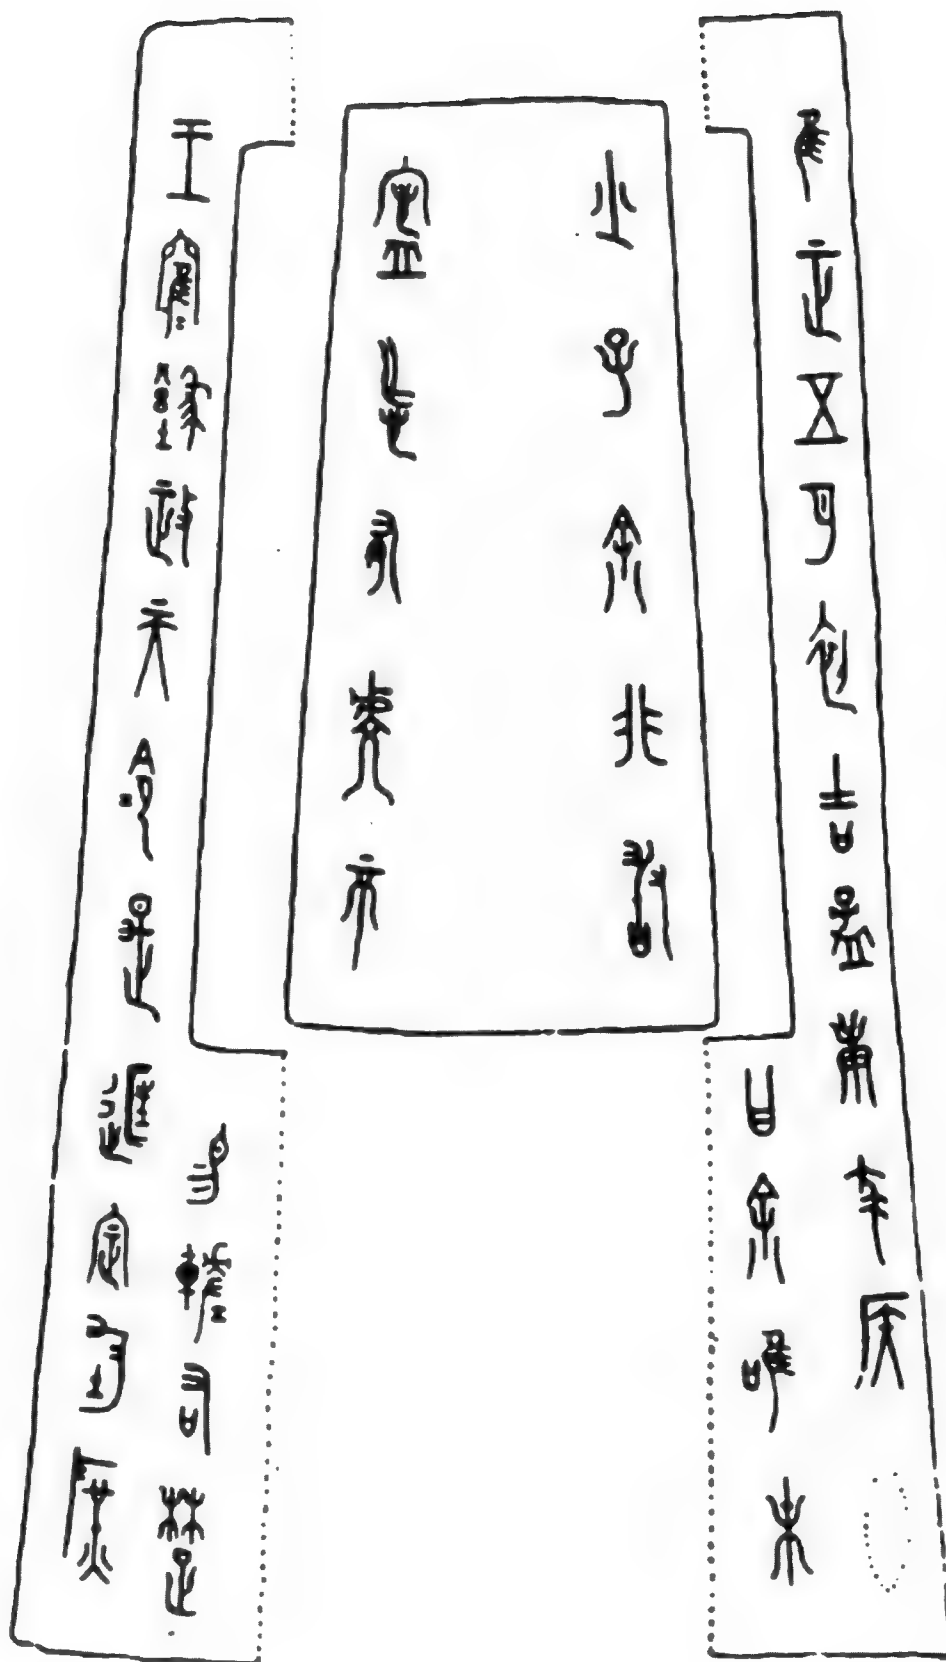 隹正五月初吉孟庚蔡侯
曰余唯末
少子余非敢
寧忘有虔不
易佐右楚
王寉寉豫政天命是遟定均庶